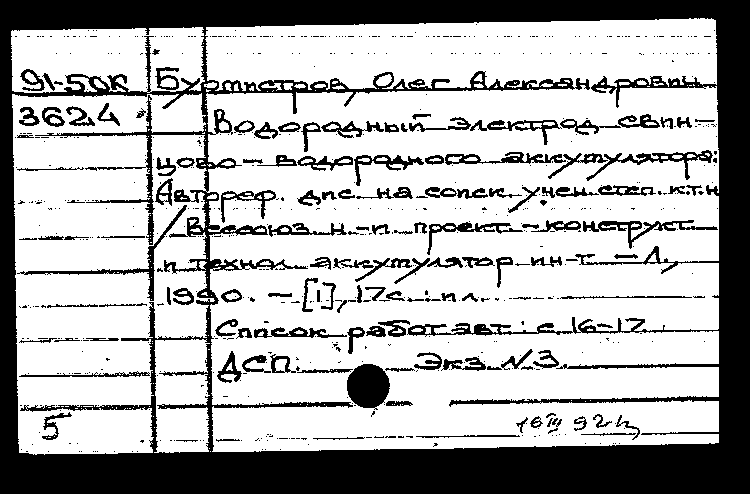 91-50к Бурмистров, Олег Александрович
3624 Водородный электрод свин-
цово-водородного аккумулятора:
Автореф. дис. на соиск. учен. степ. к.т.н
/ Всесоюз. н.-и. проект.-конструкт.
и технол. аккумулятор ин-т. — Л.,
1990. — [1], 17 с. : ил.
Список работ авт.: с. 16-17
ДСП. Экз. N 3.
5 16 III 92